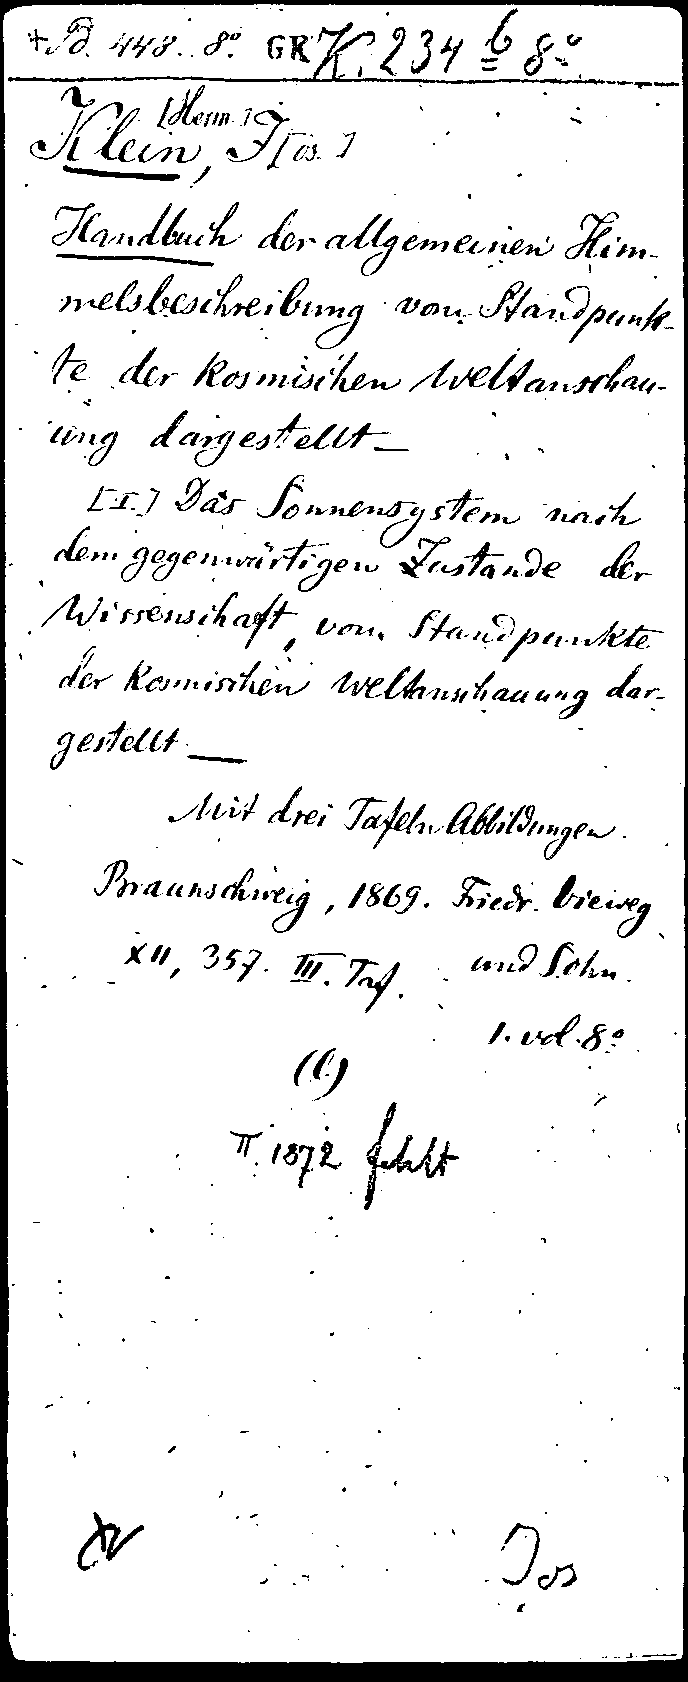 +Pd. 448. 8º. GK K. 234 b 8º.
[Herm.]
Klein, J[os.]
Handbuch der allgemeinen Him-
melsbeschreibung vom Standpunk-
te der kosmischen Weltanschau-
ung dargestellt —
[I.] Das Sonnensystem nach
dem gegenwärtigen Zustande der
Wissenschaft, vom Standpunkte
der kosmischen Weltanschauung dar-
gestellt —
Mit drei Tafeln Abbildungen.
Braunschweig, 1869. Friedr. Vieweg
XII, 357. III. Taf. und Sohn.
1. vol. 8º
(l.)
II. 1872 fehlt
Jos